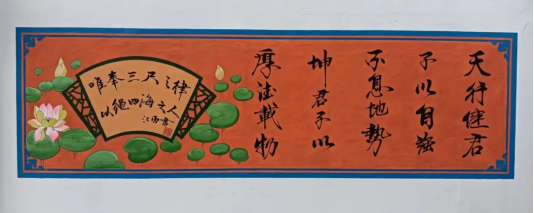 天行健君
子以自强
不息地勢
坤君子以
厚德載物
唯奉三尺之律
以绳四海之人